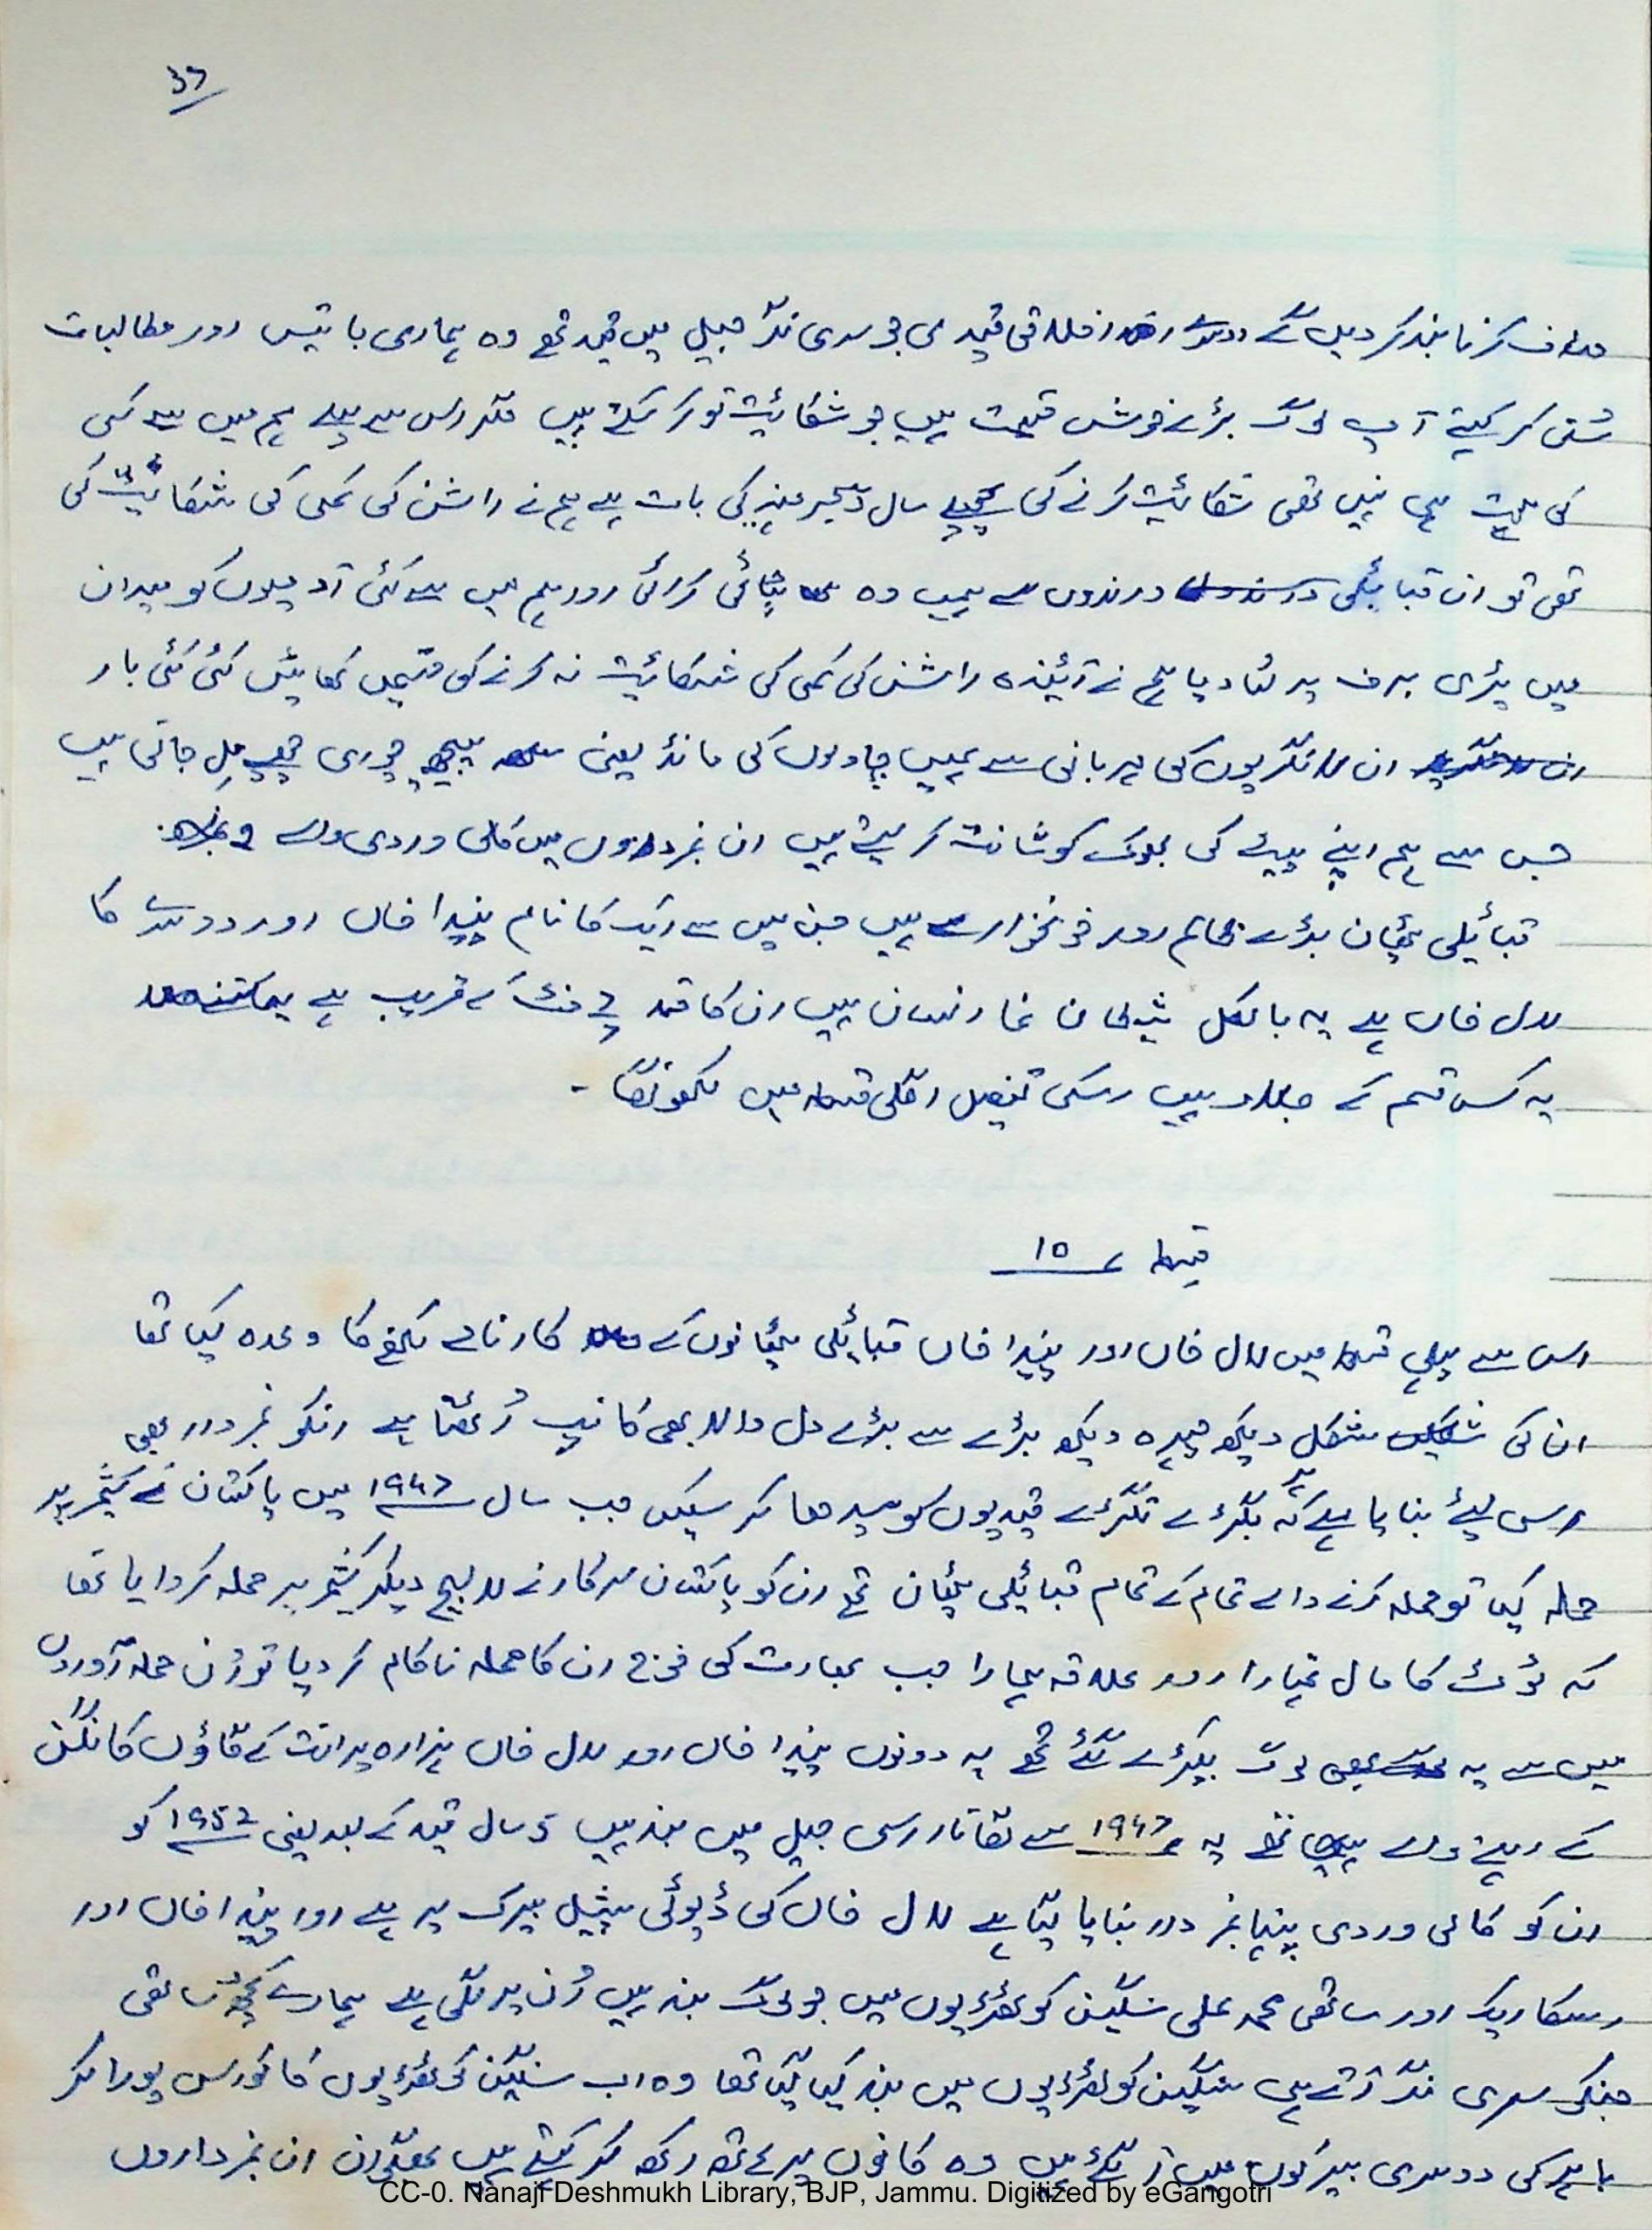 37
صاف کرنا بند کر دیں گے دوسرے اخلاقی قیدی جو سری نگر جیل میں قید تھے وہ ہماری باتیں اور مطالبات
سُن کر کہتے آپ لوگ بڑے خوش قسمت ہیں جو شکائیت تو کر سکتے ہیں مگر اس سے پہلے ہم میں سے کسی
کی ہمت ہی نہیں تھی شکائیت کرنے کی پچھلے سال دسمبر مہینے کی بات ہے ہم نے راشن کی کمی کی شکائیت کی
تھی تو ان قبائیلی درندوں سے ہمیں وہ پٹائی کرائی اور ہم میں سے کئی آدمیوں کو میدان
میں پڑی برف پر لٹا دیا ہم نے آئیندہ راشن کی کمی کی شکائیت نہ کرنے کی قسمیں کھائیں کئی کئی بار
ان لانگریوں کی مہربانی سے ہمیں چاولوں کی مانڈ یعنی پیچھ چوری چھپے مِل جاتی ہیں
جس سے ہم اپنے پیٹ کی بھوک کو شانت کر لیتے ہیں ان نمبرداروں میں کالی وردی والے
قبائیلی پٹھان بڑے ظالم اور خونخوار ہیں جن میں سے ایک کا نام پنیدا خاں اور دوسرے کا
لال خاں ہے یہ بالکل شیطان نما انسان ہیں ان کا قد ۶ فٹ کے قریب ہے
یہ کس قسم کے جلاد ہیں اسکی تفصیل اگلی قسط میں لکھونگا ۔
قسط ۱۵
اس سے پہلی قسط میں لال خاں اور پنیدا خاں قبائیلی پٹھانوں کے کارنامے لکھنے کا وعدہ کیا تھا
ان کی شکل دیکھ چہرہ دیکھ بڑے سے بڑے دل والا بھی کانپ اُٹھتا ہے انکو نمبردار بھی
اس لیئے بنایا ہے کہ بگڑے تگڑے قیدیوں کو سیدھا کر سکیں جب سال ۱۹۴۷ میں پاکستان نے کشمیر پر
حملہ کیا تو حملہ کرنے والے تمام کے تمام قبائیلی پٹھان تھے ان کو پاکستان سرکار نے لالچ دیکر کشمیر پر حملہ کروایا تھا
کہ لوٹ کا مال تمہارا اور علاقہ ہمارا جب بھارت کی فوج ان کا حملہ ناکام کر دیا تو اُن حملہ آوروں
میں سے یہ لوگ پکڑے گئے تھے یہ دونوں پنیدا خاں اور لال خاں ہزارہ پرانت کے گاؤں کانگن
کے رہنے والے تھے یہ ۱۹۴۷ سے لگاتار اسی جیل میں بند ہیں ۵ سال قید کے بعد یعنی ۱۹۵۲ کو
ان کو کالی وردی پہنچا نمبردار بنایا گیا ہے لال خاں کی ڈیوٹی سپیشل بیرک پر ہے اور پنیدا خاں اور
اسکا ایک اور ساتھی محمد علی سنگین کوٹھڑیوں میں جو لوگ بند ہیں اُن پر لگی ہے ہمارے کچھ ساتھی
جنکو سری نگر آتے ہی سنگین کوٹھڑیوں میں بند کیا گیا تھا وہ اب سنگین کوٹھڑیوں کا کورس پورا کر
باہر کی دوسری بیرکوں میں آ گئے ہیں وہ کانوں پر ہاتھ رکھ کر کہتے ہیں بھگوان ان نمبرداروں
CC-0. Nanaji Deshmukh Library, BJP, Jammu. Digitized by eGangotri